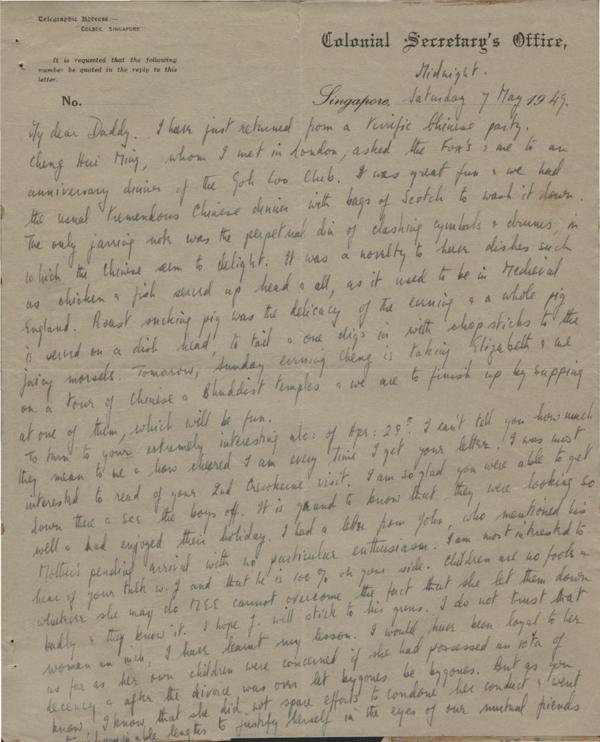 Telegraphic Address:—
"COLSEC SINGAPORE"
It is requested that the following
number be quoted in the reply to this
letter.
No.
Colonial Secretary's Office,
Midnight.
Singapore, Saturday 7 May 1949.
My dear Daddy. I have just returned from a terrific Chinese party.
Cheng Hui Ming, whom I met in London, asked the Fox's & me to an
anniversary dinner of the Goh Loo Club. It was great fun & we had
the usual tremendous Chinese dinner with bags of Scotch to wash it down.
The only jarring note was the perpetual din of clashing cymbals & drums, in
which the Chinese seem to delight. It was a novelty to have dishes such
as chicken & fish served up head & all, as it used to be in Medieval
England. Roast sucking pig was the delicacy of the evening & a whole pig
is served on a dish head to tail & one digs in with chopsticks to the
juicy morsels. Tomorrow, Sunday evening Cheng is taking Elizabeth & me
on a tour of Chinese & Bhuddist temples & we are to finish up by supping
at one of them, which will be fun.
To turn to your extremely interesting a/c: of Apr: 28th. I can't tell you how much
they mean to me & how cheered I am every time I get your letter. I was most
interested to read of your 2nd visit. I am so glad you were able to get
down there & see the boys off. It is grand to know that they were looking so
well & had enjoyed their holiday. I had a letter from John, who mentioned his
Mother's pending arrival with no particular enthusiasm. I am most interested to
hear of your talk w. J and that he is 100% on your side. Children are no fools &
whatever she may do MEE cannot overcome the fact that she let them down
badly & they know it. I hope J. will stick to his guns. I do not trust that
woman an inch, I have learnt my lesson. I would have been loyal to her
as far as her own children were concerned if she had possessed an iota of
decency & after the divorce was over let bygones be bygones. But as you
know & I know, that she did not spare efforts to condone her conduct & went
to lengths to justify herself in the eyes of our mutual friends